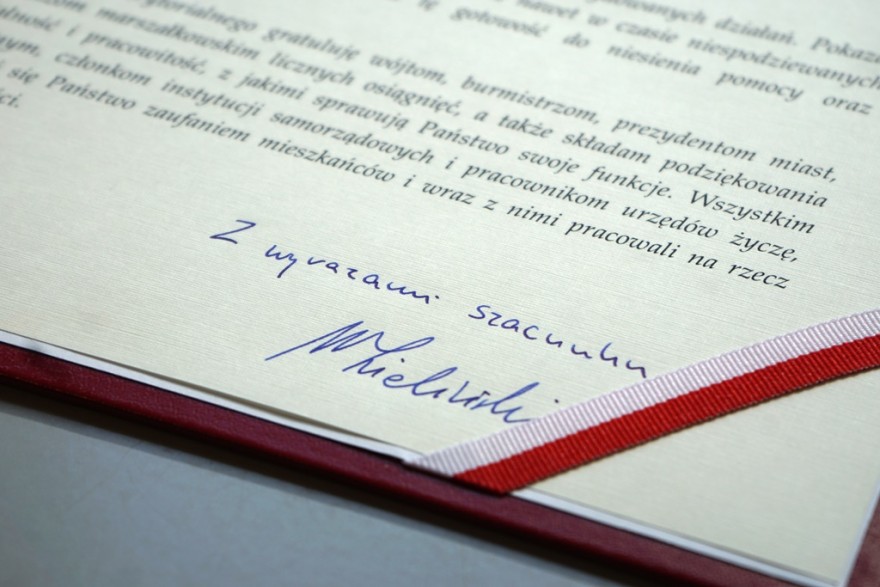 działań. Pokaza
nawet w czasie niespodziewanych
tę gotowość do niesienia pomocy oraz
ytorialnego gratuluję wójtom, burmistrzom, prezydentom miast,
om marszałkowskim licznych osiągnięć, a także składam podziękowania
alność i pracowitość, z jakimi sprawują Państwo swoje funkcje. Wszystkim
ym, członkom instytucji samorządowych i pracownikom urzędów życzę,
się Państwo zaufaniem mieszkańców i wraz z nimi pracowali na rzecz
ści.
Z wyrazami szacunku
W Zieliński